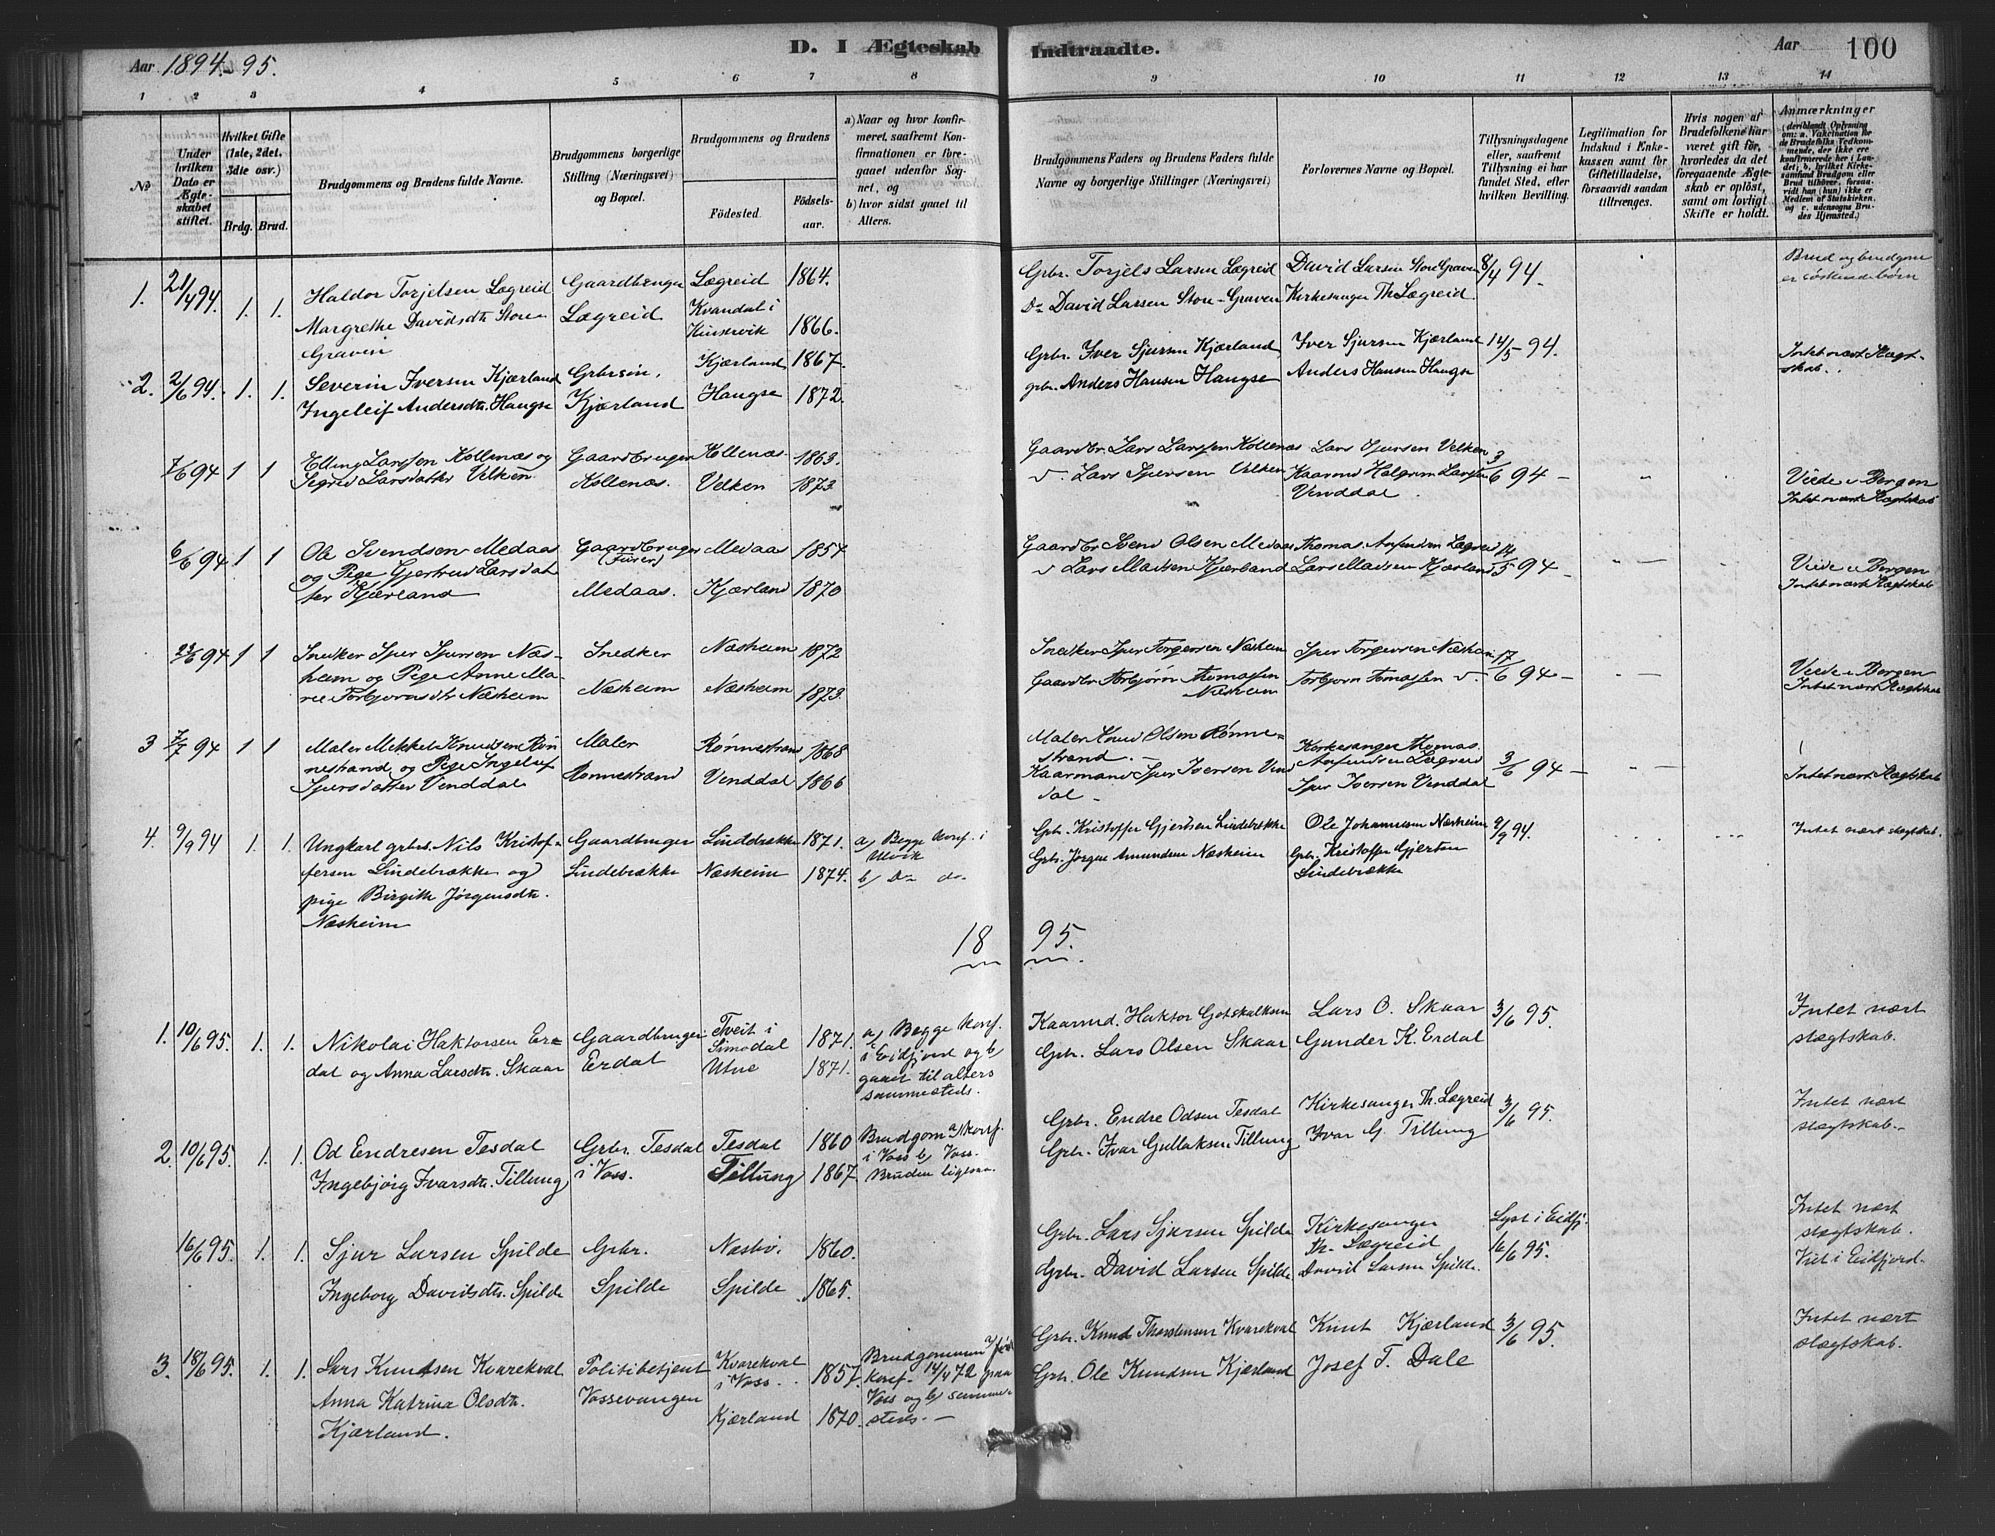 Aar 1894-95.
D. I Ægteskab Indtraadte.
Aar 100
1 2 3 4 5 6 7 8 9 10 11 12 13 14
№
Under hvilken Dato er Ægteskabet stiftet.
Hvilket Gifte (1ste, 2det, 3die osv.)
Brdg. Brud.
Brudgommens og Brudens fulde Navne.
Brudgommens borgerlige Stilling (Næringsvei) og Bopæl.
Brudgommens og Brudens
Fødested. Fødselsaar.
a) Naar og hvor konfirmeret, saafremt Konfirmationen er foregaaet udenfor Sognet, og
b) hvor sidst gaaet til Alters.
Brudgommens Faders og Brudens Faders fulde Navne og borgerlige Stillinger (Næringsvei)
Forlovernes Navne og Bopæl.
Tillysningsdagene eller, saafremt Tillysning ei har fundet Sted, efter hvilken Bevilling.
Legitimation for Indskud i Enkekassen samt for Giftetilladelse, forsaavidt sandan tiltrænges.
Hvis nogen af Brudefolkene har været gift før, hvorledes da det foregaaende Ægteskab er opløst, samt om lovligt Skifte er holdt.
Anmærkninger
1. 21/4 94. 1. 1. Haldor Torjelsen Lægreid
Margrethe Davidsdtr. Store-
Graven
Gaardbruger
Lægreid
Lægreid 1864.
Kvandal i
Kinservik 1866.
Grbr. Torjels Larsen Lægreid
Do David Larsen Store-Graven
David Larsen Store Graven
Kirkesanger Th. Lægreid
8/4 94.
Brud og brudgom
er söskendebörn
2. 2/6 94. 1. 1. Severin Iversen Kjærland
Ingeleif Andersdtr. Haugse
Grbrsön,
Kjærland
Kjærland 1867.
Haugse 1872.
Grbr. Iver Sjursen Kjærland
grbr. Anders Hansen Haugse
Iver Sjursen Kjærland
Anders Hansen Haugse
14/5 94.
Intet nært Slægt-
skab.
7/6 94 1 1 Elling Larssen Kollenæs og
Sigrid Larsdatter Velken
Gaardbruger
Kollenæs.
Kollenæs 1863.
Velken 1873.
Gaardbr Lars Larssen Kollenæs
v. Lars Sjursen Velken
Lars Sjursen Velken
Kaarmd Halgrim Larssen
Venddal
3/6 94 -
Viede i Bergen
Intet nært Slægtskab
6/6 94 1 1 Ole Svendsen Medaas
og Pige Gjertrud Larsdat
ter Kjærland
Gaardbruger
Medaas.
Medaas 1854
Kjærland 1870
Gaardbr Svend Olsen Medaas
v Lars Madsen Kjærland
Thomas Anfindsen Lægreid
Lars Madsen Kjærland
14/5 94 -
Viede i Bergen
Intet nært Slægtskab
23/6 94 1 1 Snedker Sjur Sjursen Næs-
heim og Pige Anne Ma-
rie Torbjørnsdtr Næsheim
Snedker
Næsheim
Næsheim 1872
Næsheim 1873.
Snedker Sjur Torgersen Næsheim
Gaardbr Torbjörn Thomassen
Næsheim
Sjur Torgersen Næsheim
Torbjørn Tomassen v.
17/6 94 -
Viede i Bergen
Intet nært Slægtskab
3 7/7 94 1 1 Maler Mekkel Knudsen Røn
nestrand og Pige Ingeleif
Sjursdatter Venddal
Maler
Rønnestrand
Rønnestrand 1868
Venddal 1866
Maler Knud Olsen Rønne-
strand. -
Kaarmand Sjur Iversen Vend
dal -
Kirkesanger Thomas
Anfindsen Lægreid
Sjur Iversen Venddal
3/6 94 -
Intet nært Slægtskab
4. 9/9 94 1. 1. Ungkarl grbrs. Nils Kristof-
fersen Lindebrække og
pige Birgithe Jörgensdtr.
Næsheim
Gaardbruger
Lindebrække
Lindebrække 1871.
Næsheim 1874.
a) Begge konf. i
Ulvik
b) Do do
Grbr. Kristoffer Gjertsen Lindebrække
Grbr. Jörgen Amundsen Næsheim
Ole Johannesen Næsheim
Grbr. Kristoffer Gjertsen
Lindebrække
2/9 94.
Intet nært slægtskab.
1895.
1. 10/6 95. 1. 1. Nikolai Haktorsen Er-
dal og Anna Larsdtr. Skaar
Gaardbruger
Erdal
Tveit i
Simodal 1871.
Utne 1871.
a) Begge konf.
i Eidfjord og b)
gaaet til alters
sammesteds.
Kaarmd. Haktor Gotskalksen
Grbr. Lars Olsen Skaar
Lars O. Skaar
Gunder K. Erdal
3/6 95.
Intet nært
slægtskab.
2. 10/6 95. 1. 1. Od Endresen Tesdal
Ingebjörg Ivarsdtr. Tillung
Grbr. Tesdal
i Voss.
Tesdal 1860
Tillung 1867
Brudgom a) konf.
i Voss b) Voss.
Bruden ligesaa.
Grbr. Endre Odsen Tesdal
Grbr. Ivar Gullaksen Tillung
Kirkesanger Th. Lægreid
Ivar G. Tillung
3/6 95.
Intet nært
slægtskab.
16/6 95. 1. 1. Sjur Larsen Spilde
Ingeborg Davidsdtr. Spilde
Grbr.
Spilde
Næsbö. 1860.
Spilde 1865.
Grbr. Lars Sjursen Spilde
Grbr. David Larsen Spilde
Kirkesanger
Th. Lægreid
David Larsen Spilde
Lyst i Eidfj.
16/6 95.
Intet nært
slægtskab.
Viet i Eidfjord.
3. 18/6 95. 1. 1. Lars Knudsen Kvarekval
Anna Katrina Olsdtr.
Kjærland.
Politibetjent
Vossevangen
Kvarekval
i Voss. 1857.
Kjærland 1870.
Brudgommen a)
konf. 14/4 72 paa
Voss og b) samme-
steds. -
Grbr. Knud Thorstensen Kvarekval
Grbr. Ole Knudsen Kjærland
Knut Kjærland
Josef T. Dale
3/6 95.
Intet nært
slægtskab.